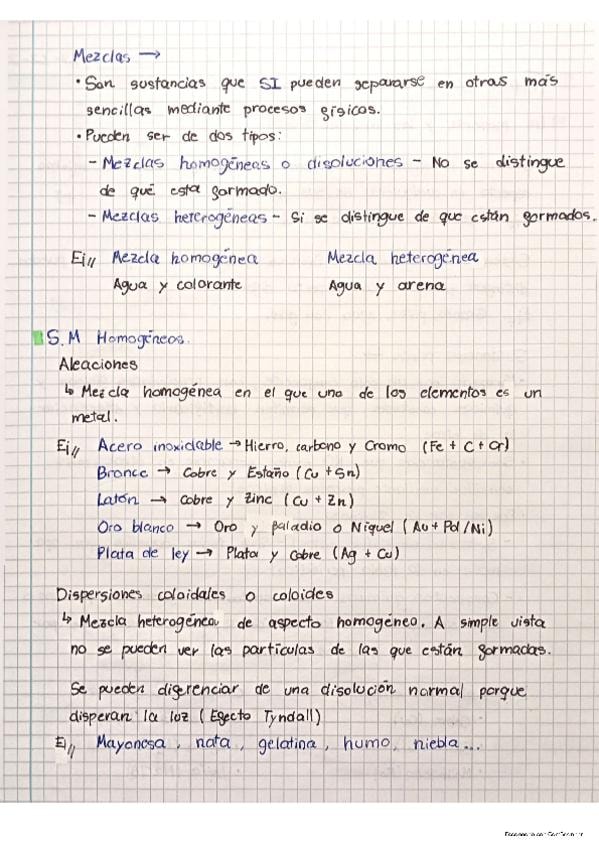 Mezclas →
• Son sustancias que SI pueden separarse en otras más
sencillas mediante procesos físicos.
• Pueden ser de dos tipos:
- Mezclas homogéneas o disoluciones - No se distingue
de qué esta formado.
- Mezclas heterogéneas - Si se distingue de que están formados.
Ej// Mezcla homogénea Mezcla heterogénea
Agua y colorante Agua y arena
5.M Homogéneos.
Aleaciones
↳ Mezcla homogénea en el que uno de los elementos es un
metal.
Ej// Acero inoxidable → Hierro, carbono y Cromo (Fe + C + Cr)
Bronce → Cobre y Estaño (Cu + Sn)
Latón → Cobre y Zinc (Cu + Zn)
Oro blanco → Oro y paladio o Niquel (Au + Pd/Ni)
Plata de ley → Plata y Cobre (Ag + Cu)
Dispersiones coloidales o coloides
↳ Mezcla heterogénea de aspecto homogéneo. A simple vista
no se pueden ver las partículas de las que están formadas.
Se pueden diferenciar de una disolución normal porque
disperan la luz (Efecto Tyndall)
Ej// Mayonesa, nata, gelatina, humo, niebla...